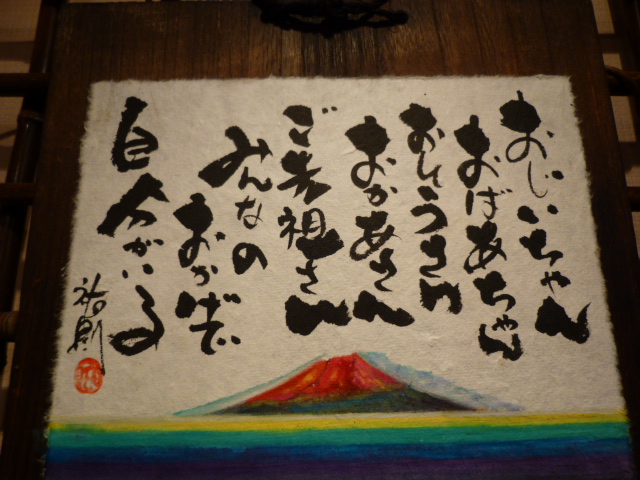 おじいちゃん
おばあちゃん
おとうさん
おかあさん
ご先祖さん
みんなの
おかげで
自分がいる
祐則